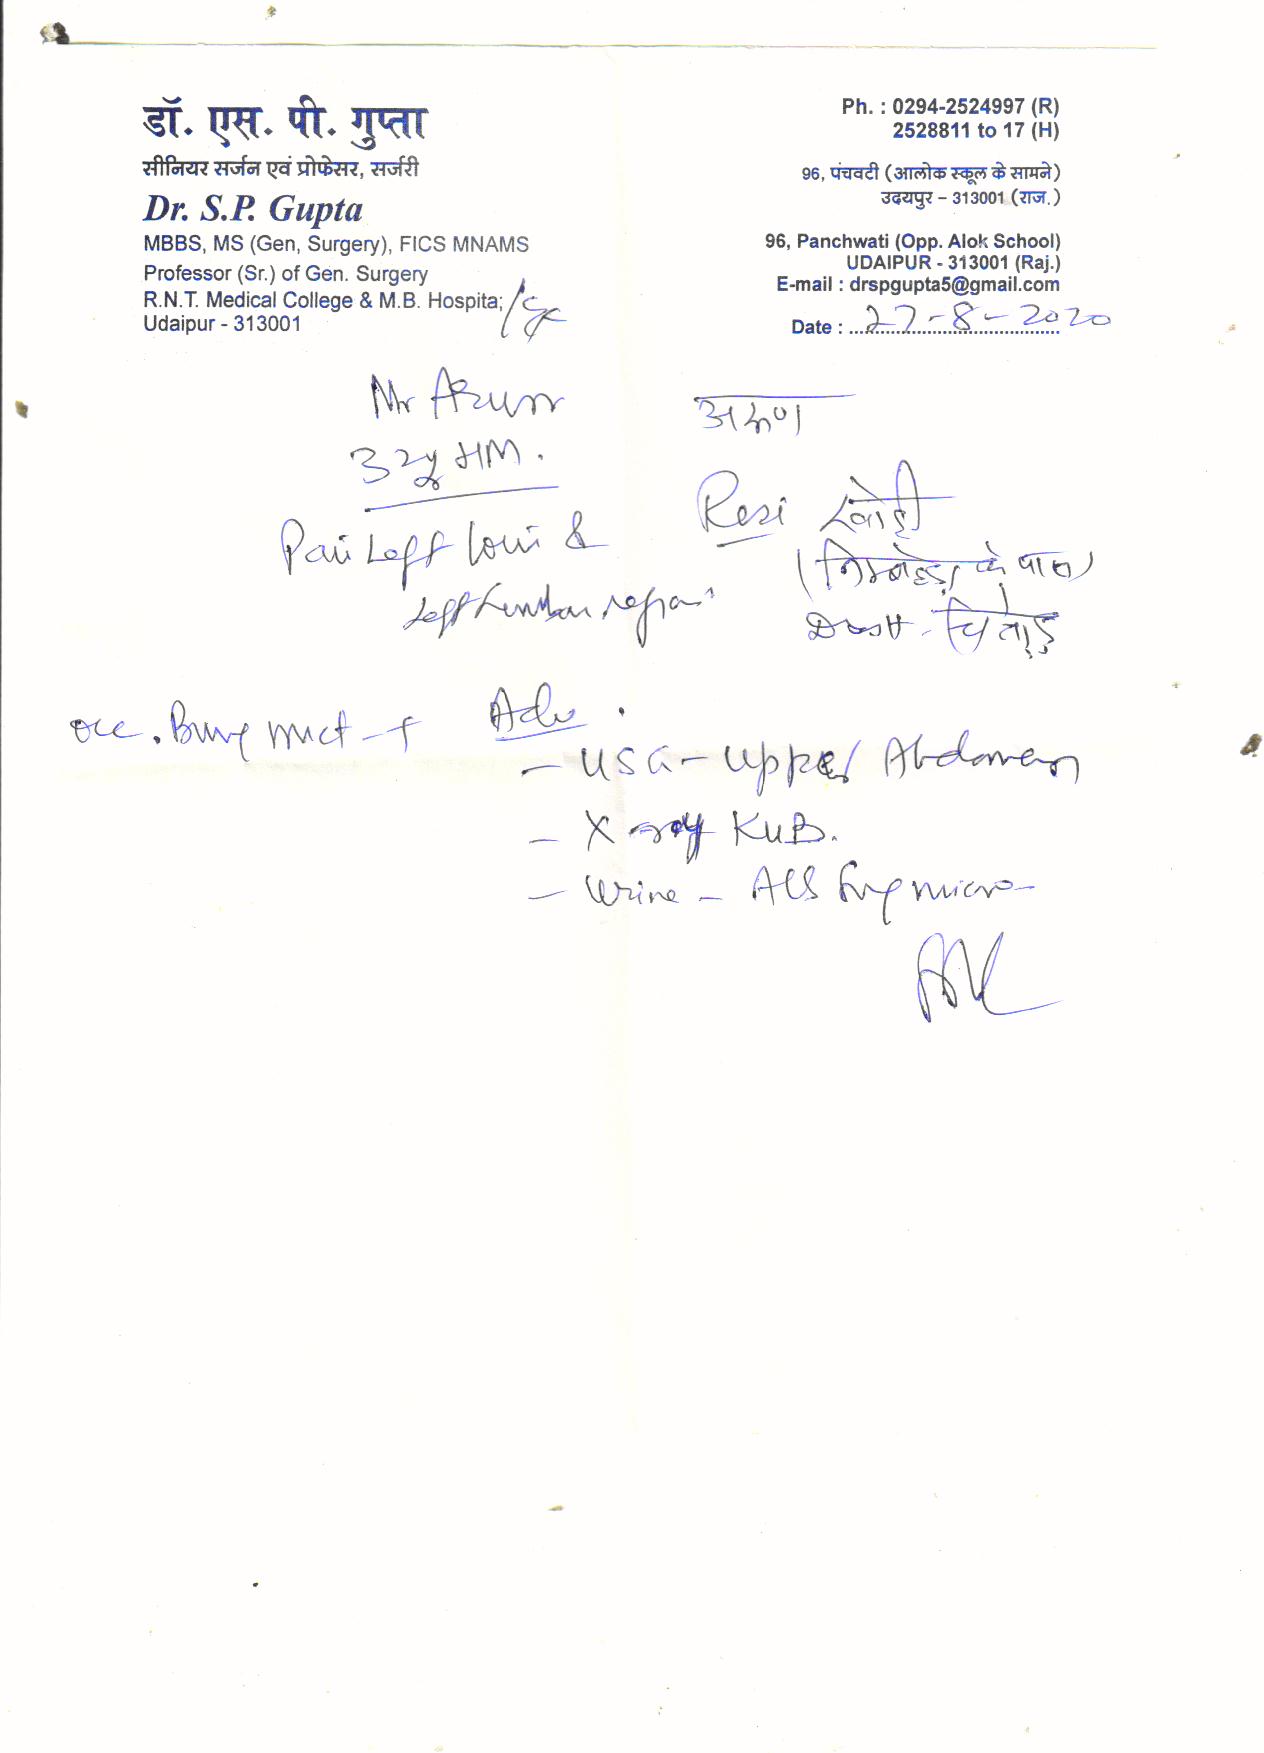 डॉ. एस. पी. गुप्ता
सीनियर सर्जन एवं प्रोफेसर, सर्जरी
Dr. S.P. Gupta
MBBS, MS (Gen, Surgery), FICS MNAMS
Professor (Sr.) of Gen. Surgery
R.N.T. Medical College & M.B. Hospita;
Udaipur - 313001
Ph. : 0294-2524997 (R)
2528811 to 17 (H)
96, पंचवटी (आलोक स्कूल के सामने)
उदयपुर – 313001 (राज.)
96, Panchwati (Opp. Alok School)
UDAIPUR - 313001 (Raj.)
E-mail : drspgupta5@gmail.com
Date : 27-8-2020
Mr Arun अरुण
32y HM.
Pain Left loin & Resi
Left Lumbar region (निम्बाहेड़ा के पास)
Distt - चित्तोड़
Occ. Burg mict - +
Adv.
- USG - Upper Abdomen
- X-ray KUB.
- Urine - micro -